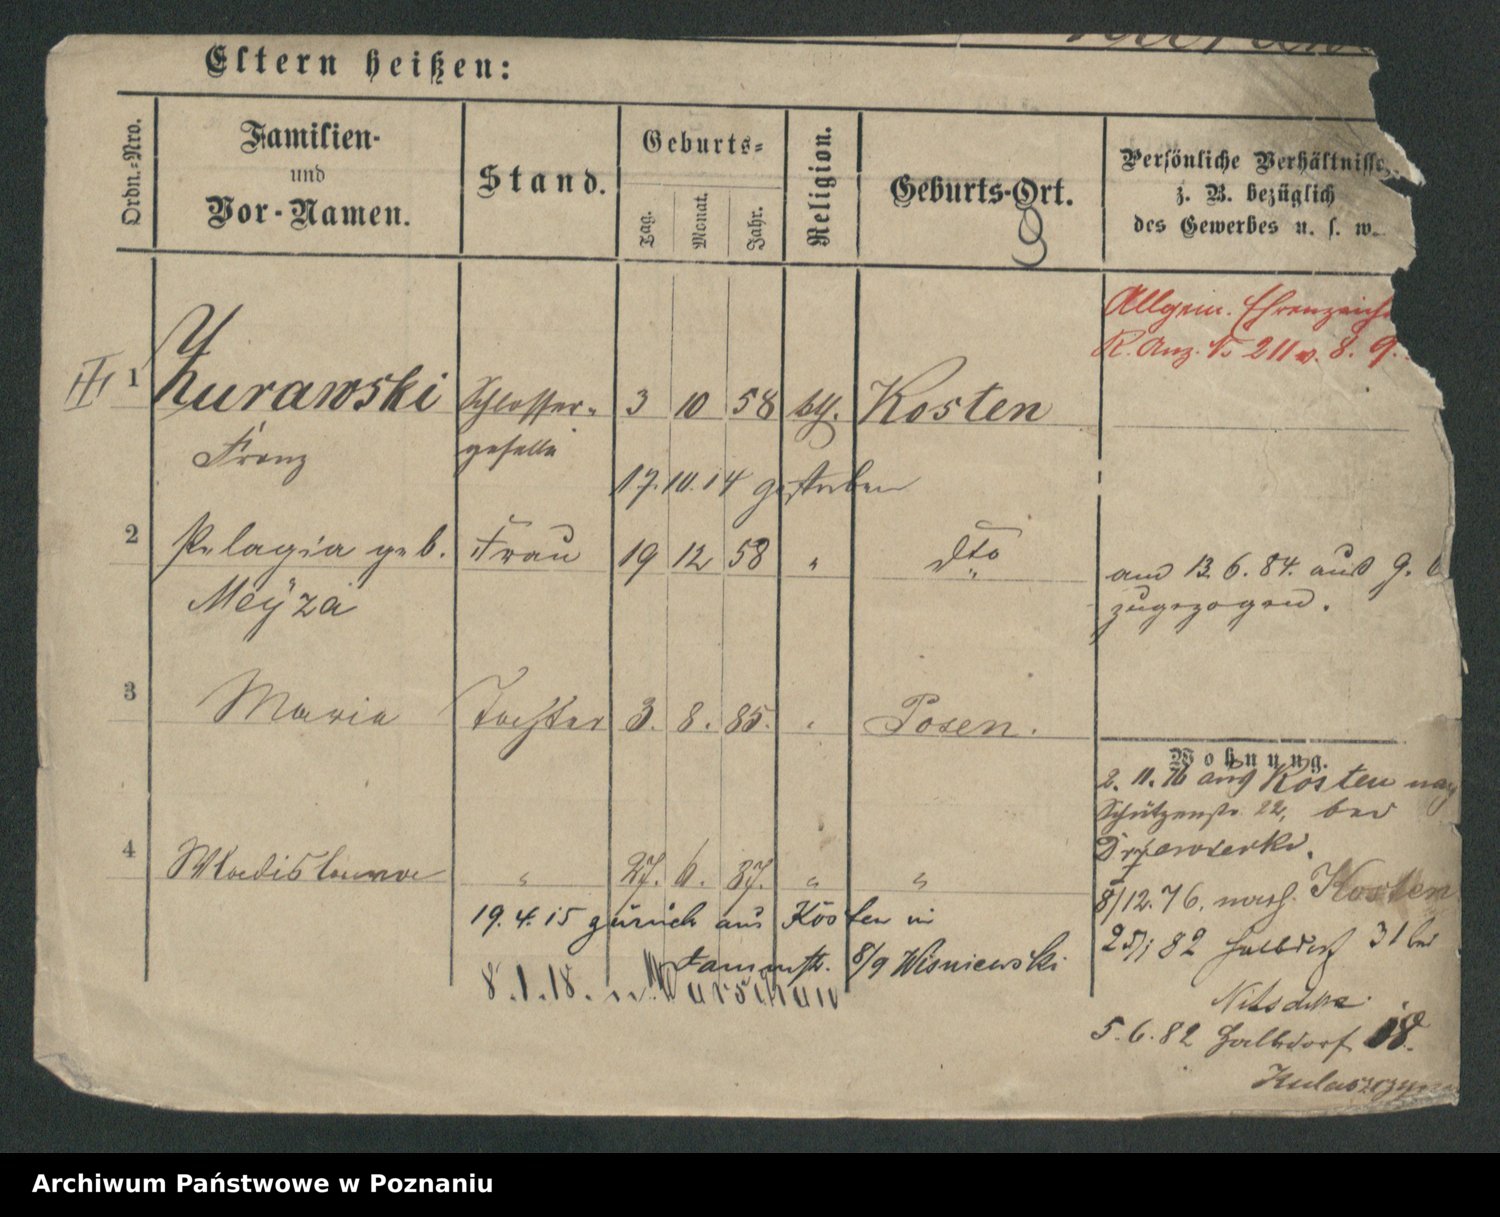 Eltern heißen:
Ordn.-Nro.
Familien-
und
Vor-Namen.
Stand.
Geburts-
Tag.
Monat.
Jahr.
Religion.
Geburts-Ort.
Persönliche Verhältnisse,
z. B. bezüglich
des Gewerbes u. s. w.
Allgem. Ehrenzeich
R. Anz. No 211 v. 8. 9.
III
1 Żurawski Schlosser- 3 10 58 kth. Kosten
Franz geselle
17.10.14 gestorben
2 Pelagia geb. Frau 19 12 58 " dto
Meyza
am 13. 6. 84. aus G.
zugezogen.
3 Maria Tochter 3. 8. 85. " Posen.
4 Wladislawa " 27. 6. 87. " "
19. 4. 15 zurück aus Kosten in
8/9 Wisniewski
8. 1. 18. n. Warschau
Wohnung.
2. 11. 76 aus Kosten nach
Schützenstr. 22, bei
8/12. 76. nach Kosten
82 Halbdorf 31 bei
Nitschke
5. 6. 82 Halbdorf 18.